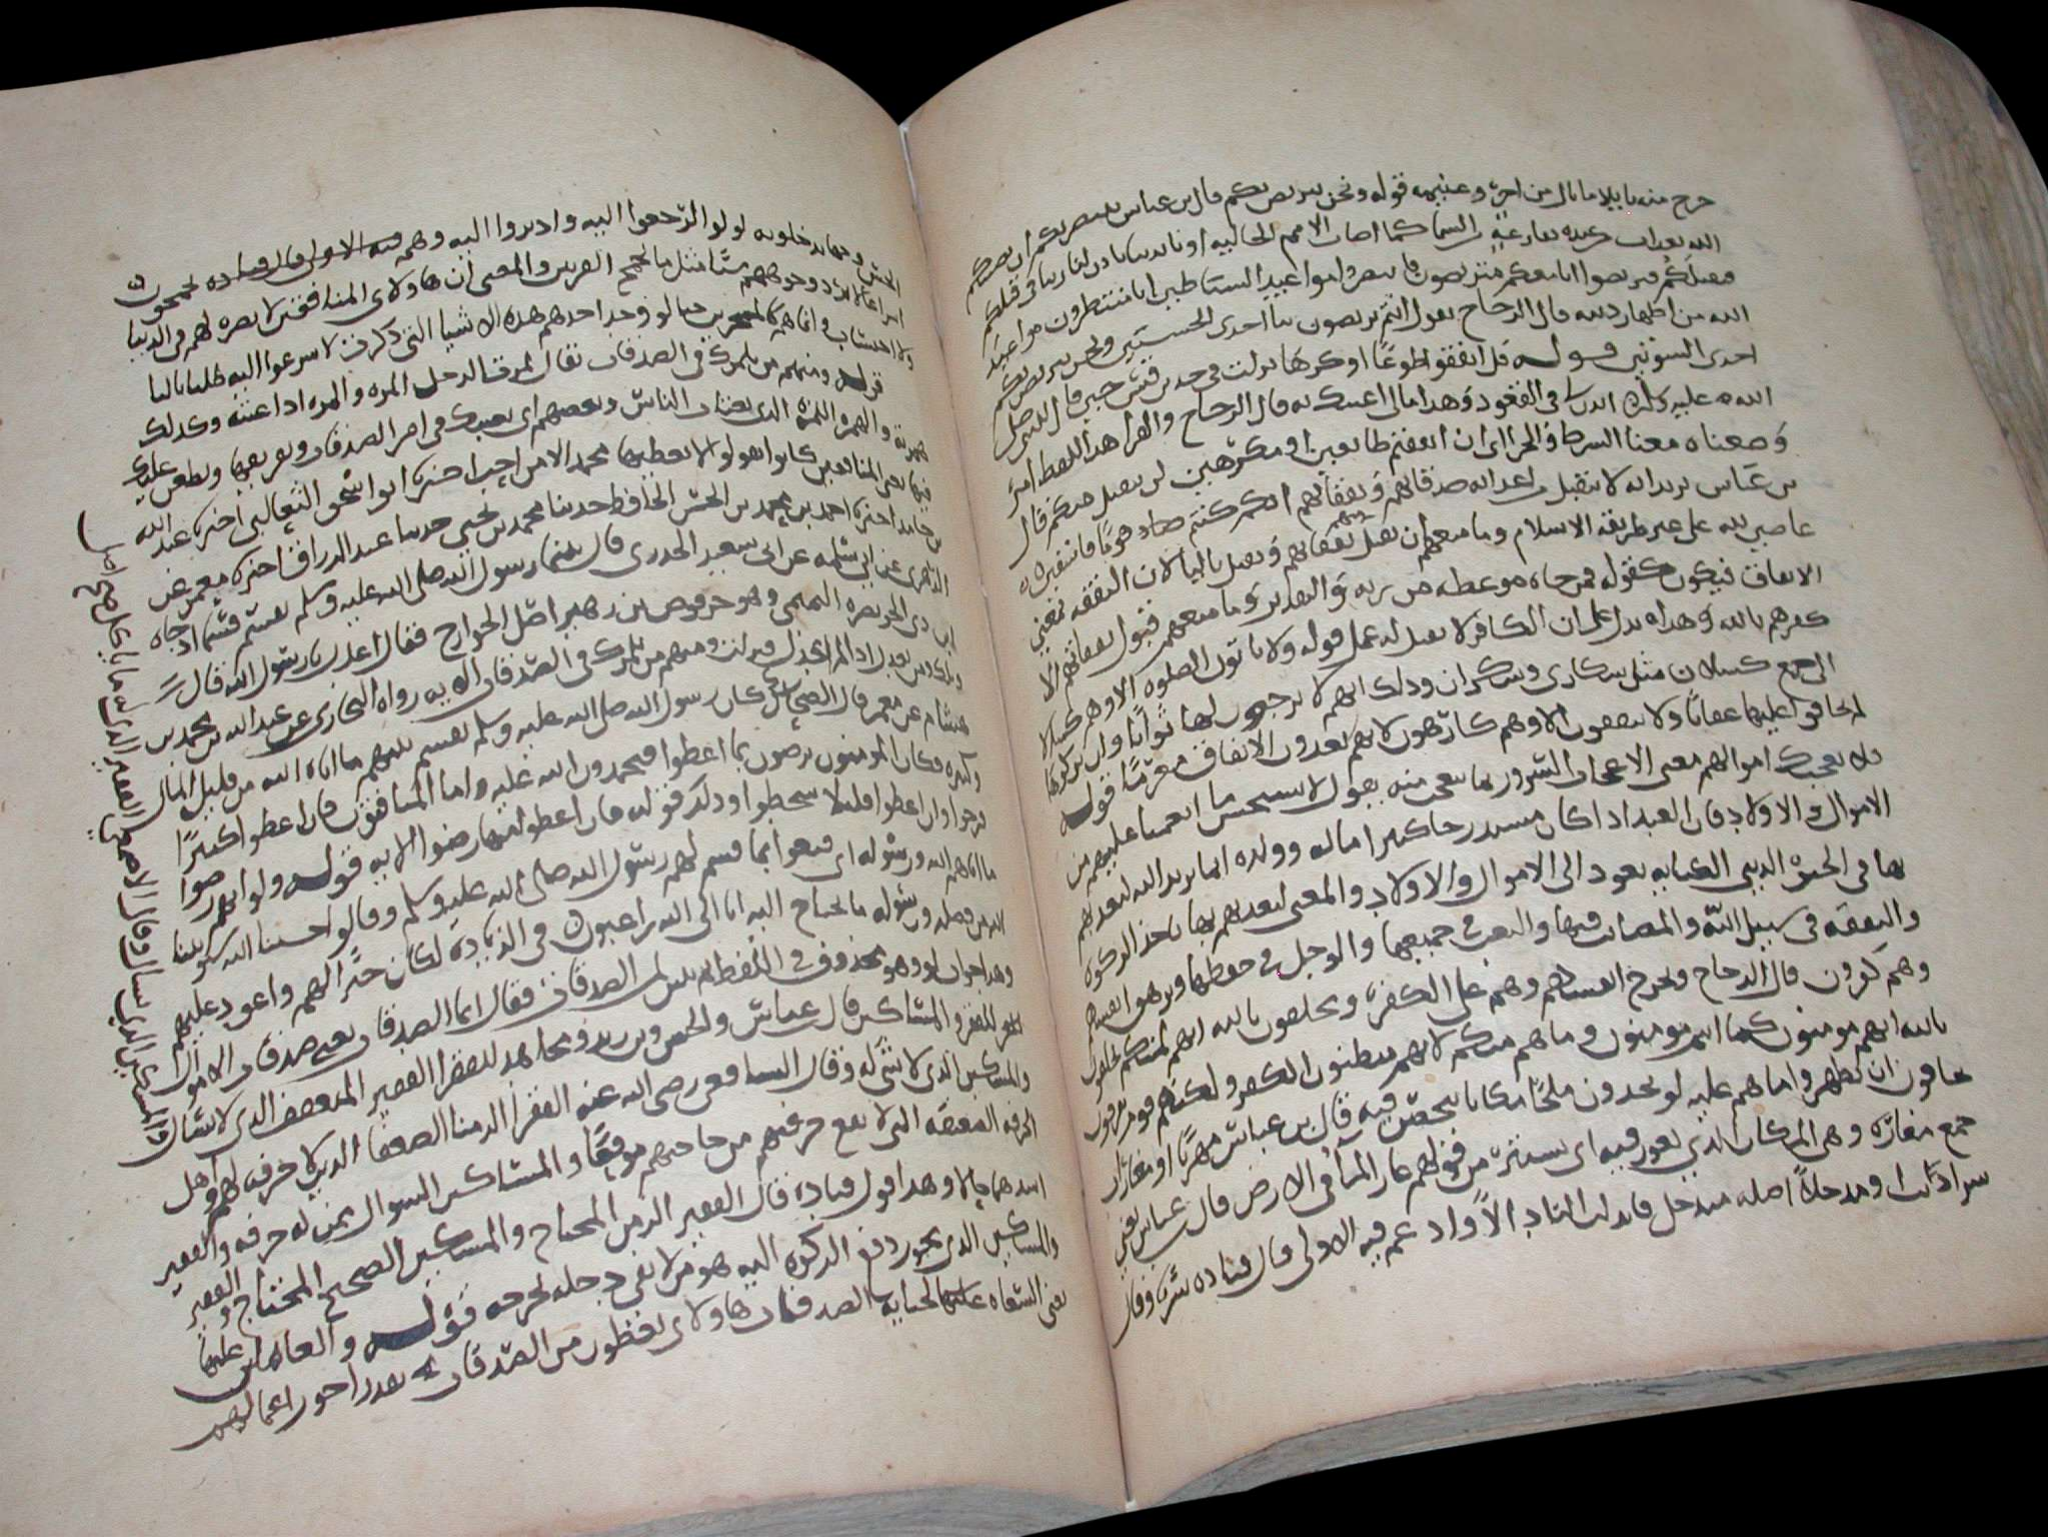 خرج منه نايلا ما نال من اجر وغنيمه قوله ونحن نتربص بكم قال بن عباس نتربص بكم ان يصيبكم
الله بعذاب من عنده بقارعة من السما كما اصاب الامم الخاليه او بايدينا باذن لنا ربنا في قتلكم
فنقتلكم فتربصوا انا معكم متربصون فانتظروا مواعيد الشيطان انا منتظرون مواعيد
الله من اظهار دينه قال الزجاج يقول انتم تربصون بنا احدى الحسنيين ونحن نتربص بكم
احدى السوئتين قوله قل انفقوا طوعا او كرها نزلت في جد بن قيس حين قال للنبي صلى
الله عليه وسلم ايذن لي في القعود وهذا مالي اعينك به قال الزجاج والفرا هذا اللفظ امر
ومعناه معنا الشرط والجزا اي ان انفقتم طايعين او مكرهين لن يتقبل منكم قال
بن عباس يريد انه لا يتقبل من اعدايه صدقاتهم ونفقاتهم انكم كنتم قوما فاسقين
عاصين لله على غير طريقه الاسلام وما منعهم ان تقبل منهم نفقاتهم ويقبل باليا لان النفقه بمعنى
الانفاق فيكون كقوله فمن جاه موعظه من ربه والتقدير وما منعهم قبول نفقاتهم الا
كفرهم بالله وهذا يدل على ان الكافر لا يقبل له عمل قوله ولا ياتون الصلوه الا وهم كسالا
الي جمع كسلان مثل سكارى وسكران وذلك انهم لا يرجون لها ثوابا وان تركوها
لم يخافوا عليها عقابا ولا ينفقون الا وهم كارهون لانهم يعدون الانفاق مغرما قوله
فلا تعجبك اموالهم معنى الاعجاب السرور بما يتعجب منه يقول لا تستحسن ما انعمنا عليهم من
الاموال والاولاد فان العبد اذا كان مستدرجا كثر الله ماله وولده انما يريد الله ليعذبهم
بها في الحيوة الدنيا الكنايه تعود الى الاموال والاولاد والمعنى ليعذبهم بها باخذ الزكوة
والنفقه في سبيل الله والمصايب فيها والتعب في جمعها والوجل في حفظها وتزهق انفسهم
وهم كفرون قال الزجاج وتخرج انفسهم وهم على الكفر ويحلفون بالله انهم لمنكم يحلفون
بالله انهم مومنون كما انتم مومنون وما هم منكم لانهم يبطنون الكفر ولكنهم قوم يفرقون
يخافون ان يظهروا ما هم عليه لو يجدون ملجأ مكانا يتحصن فيه قال بن عباس مهربا او مغارات
جمع مغاره وهي المكان الذي يغور فيه اي يستتر من قولهم غار المآ في الارض قال بن عباس يعني
سراديب او مدخلا اصله مدتخل فابدلت التاء دالا وادغم فيه الاولى قال قتاده سربا وقال
الحسن وجها يدخلونه لولوا اليه لرجعوا اليه وادبروا اليه وهم يجمحون
اسراعا لا يرد وجوههم شيا مثل ما يجمح الفرس والمعنى ان هاولاى المنافقين لا بصره لهم في الدنيا
ولا احتساب وانما هم كالمسخرين حتا لو وجد احدهم هذه الاشيا التي ذكرت لاسرعوا اليه طلبا
قوله ومنهم من يلمزك في الصدقات يقال لمزت الرجل المزه والمزه اذا عبته وكذلك
همزته والهمزه اللمزه الذي يغتاب الناس ويعضهم اي يعيبك في امر الصدقات وتفريقها ويطعن عليك
فيها يعني المنافقين كانوا يقولون لا يعطيها محمد الا من احب اخبرنا ابو اسحق الثعالبي اخبرنا عبد الله
بن حامد اخبرنا احمد بن محمد بن الحسن الحافظ حدثنا محمد بن يحيى حدثنا عبد الرزاق اخبرنا معمر عن
الزهري عن ابي سلمه عن ابي سعيد الخدري قال بينما رسول الله صلى الله عليه وسلم يقسم قسما اذ جاه
ابن ذي الخويصره التميمي وهو حرقوص بن زهير اصل الخوارج فقال اعدل يا رسول الله قال
ويلك ومن يعدل اذا لم اعدل فنزلت ومنهم من يلمزك في الصدقات الايه رواه البخاري عن عبد الله بن محمد بن
هشام عن معمر قال الضحاك كان رسول الله صلى الله عليه وسلم يقسم بينهم ما اتاه الله من قليل المال
وكثيره وكان المومنون يرضون بما اعطوا ويحمدون الله عليه واما المنافقون فان اعطوا كثيرا
فرحوا وان اعطوا قليلا سخطوا وذلك قوله فان اعطوا منها رضوا الايه قوله ولو انهم رضوا
ما اتاهم الله ورسوله اي قنعوا بما قسم لهم رسول الله صلى الله عليه وسلم وقالوا حسبنا الله سيوتينا
الله من فضله ورسوله ما نحتاج اليه انا الى الله راغبون في الزياده لكان خيرا لهم واعود عليهم
وهذا جواب لو وهو محذوف في اللفظ ثم بين لمن الصدقات فقال انما الصدقات يعني صدقات الاموال
للفقرا والمساكين قال بن عباس والحسن وبن زيد ومجاهد الفقرا الفقير المتعفف الذي لا يسال
والمساكين الذي لا شي له وقال الشافعي رضي الله عنه الفقرا الزمنا الضعفا الذين لا حرفه لهم واهل
الحرفه الضعيفه التي لا تقع حرفتهم من حاجتهم موقعا والمساكين السوال ممن له حرفه والفقير
اشدهما حالا وهذا قول قتاده قال الفقير الزمن المحتاج والمساكين الصحيح المحتاج والفقير
والمساكين الذي يجوز دفع الزكوه اليه هو من لا يفي دخله بخرجه قوله والعاملين عليها
يعني السعاه لجبايه الصدقات هاولاى يعطون من الصدقات بقدر اجور اعمالهم
والمساكين الذي يسال وقال الاصمعي الفقير الذي له ما ياكل صح اصل